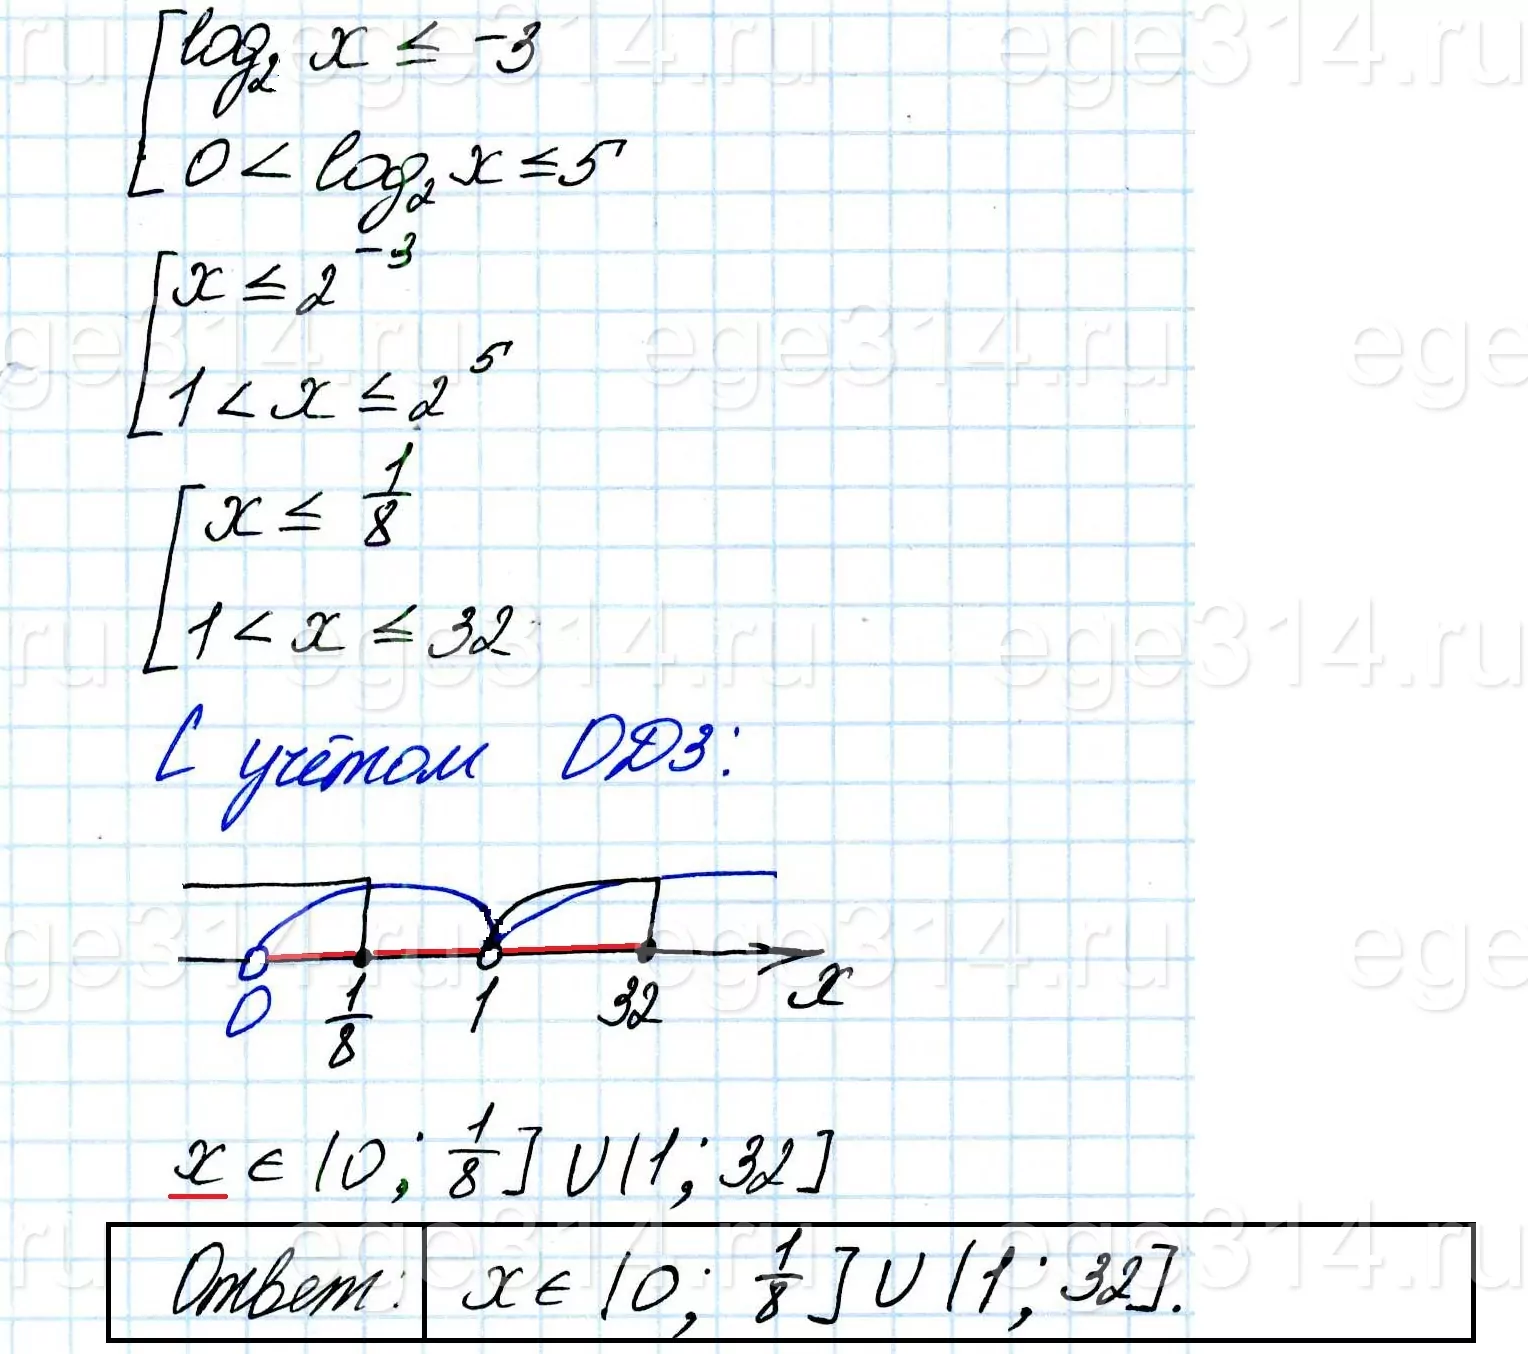 [ log₂ x ≤ -3
0 < log₂ x ≤ 5
[ x ≤ 2⁻³
1 < x ≤ 2⁵
[ x ≤ 1/8
1 < x ≤ 32
С учётом ОДЗ:
0 1/8 1 32 x
x ∈ (0; 1/8] ∪ (1; 32]
Ответ: x ∈ (0; 1/8] ∪ (1; 32].
ege314.ru